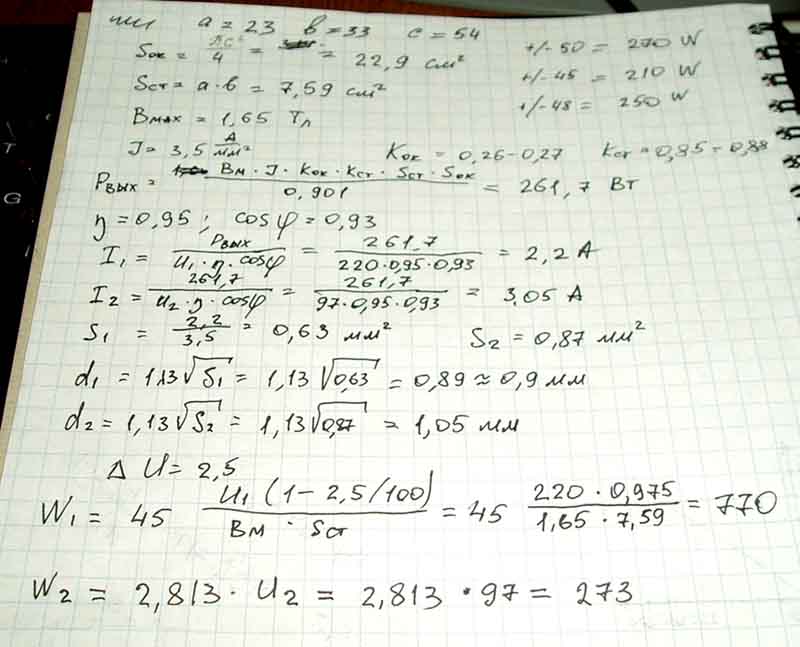 a = 23 в = 33 c = 54
Sок = πc²/4 = = 22,9 см² +/- 50 = 270 W
Sст = a · в = 7,59 см² +/- 45 = 210 W
Bмах = 1,65 Тл +/- 48 = 250 W
J = 3,5 А/мм² Kок = 0,26-0,27 Kст = 0,85-0,88
Pвых = Bм · J · Kок · Kст · Sст · Sок / 0,901 = 261,7 Вт
η = 0,95 ; cosφ = 0,93
I₁ = Pвых / U₁ · η · cosφ = 261,7 / 220·0,95·0,93 = 2,2 А
I₂ = 261,7 / U₂ · η · cosφ = 261,7 / 97·0,95·0,93 = 3,05 А
S₁ = 2,2 / 3,5 = 0,63 мм² S₂ = 0,87 мм²
d₁ = 1,13√S₁ = 1,13√0,63 = 0,89 ≈ 0,9 мм
d₂ = 1,13√S₂ = 1,13√0,87 = 1,05 мм
Δ U = 2,5
W₁ = 45 U₁ (1 - 2,5/100) / Bм · Sст = 45 220 · 0,975 / 1,65 · 7,59 = 770
W₂ = 2,813 · U₂ = 2,813 · 97 = 273